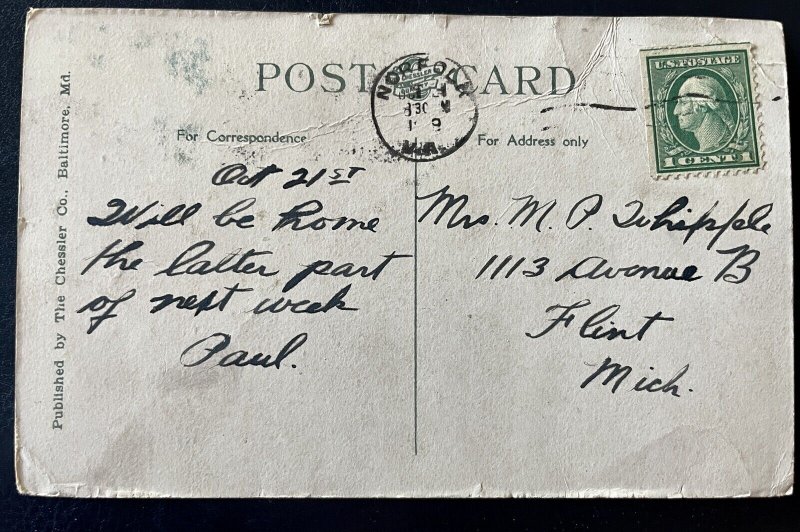 POST CARD
NORFOLK
VA.
U.S. POSTAGE
1 CENT 1
For Correspondence
For Address only
Published by The Chessler Co., Baltimore, Md.
Oct 21st
Will be home
the latter part
of next week
Paul.
Mrs. M. P. Whipple
1113 Avonue B
Flint
Mich.